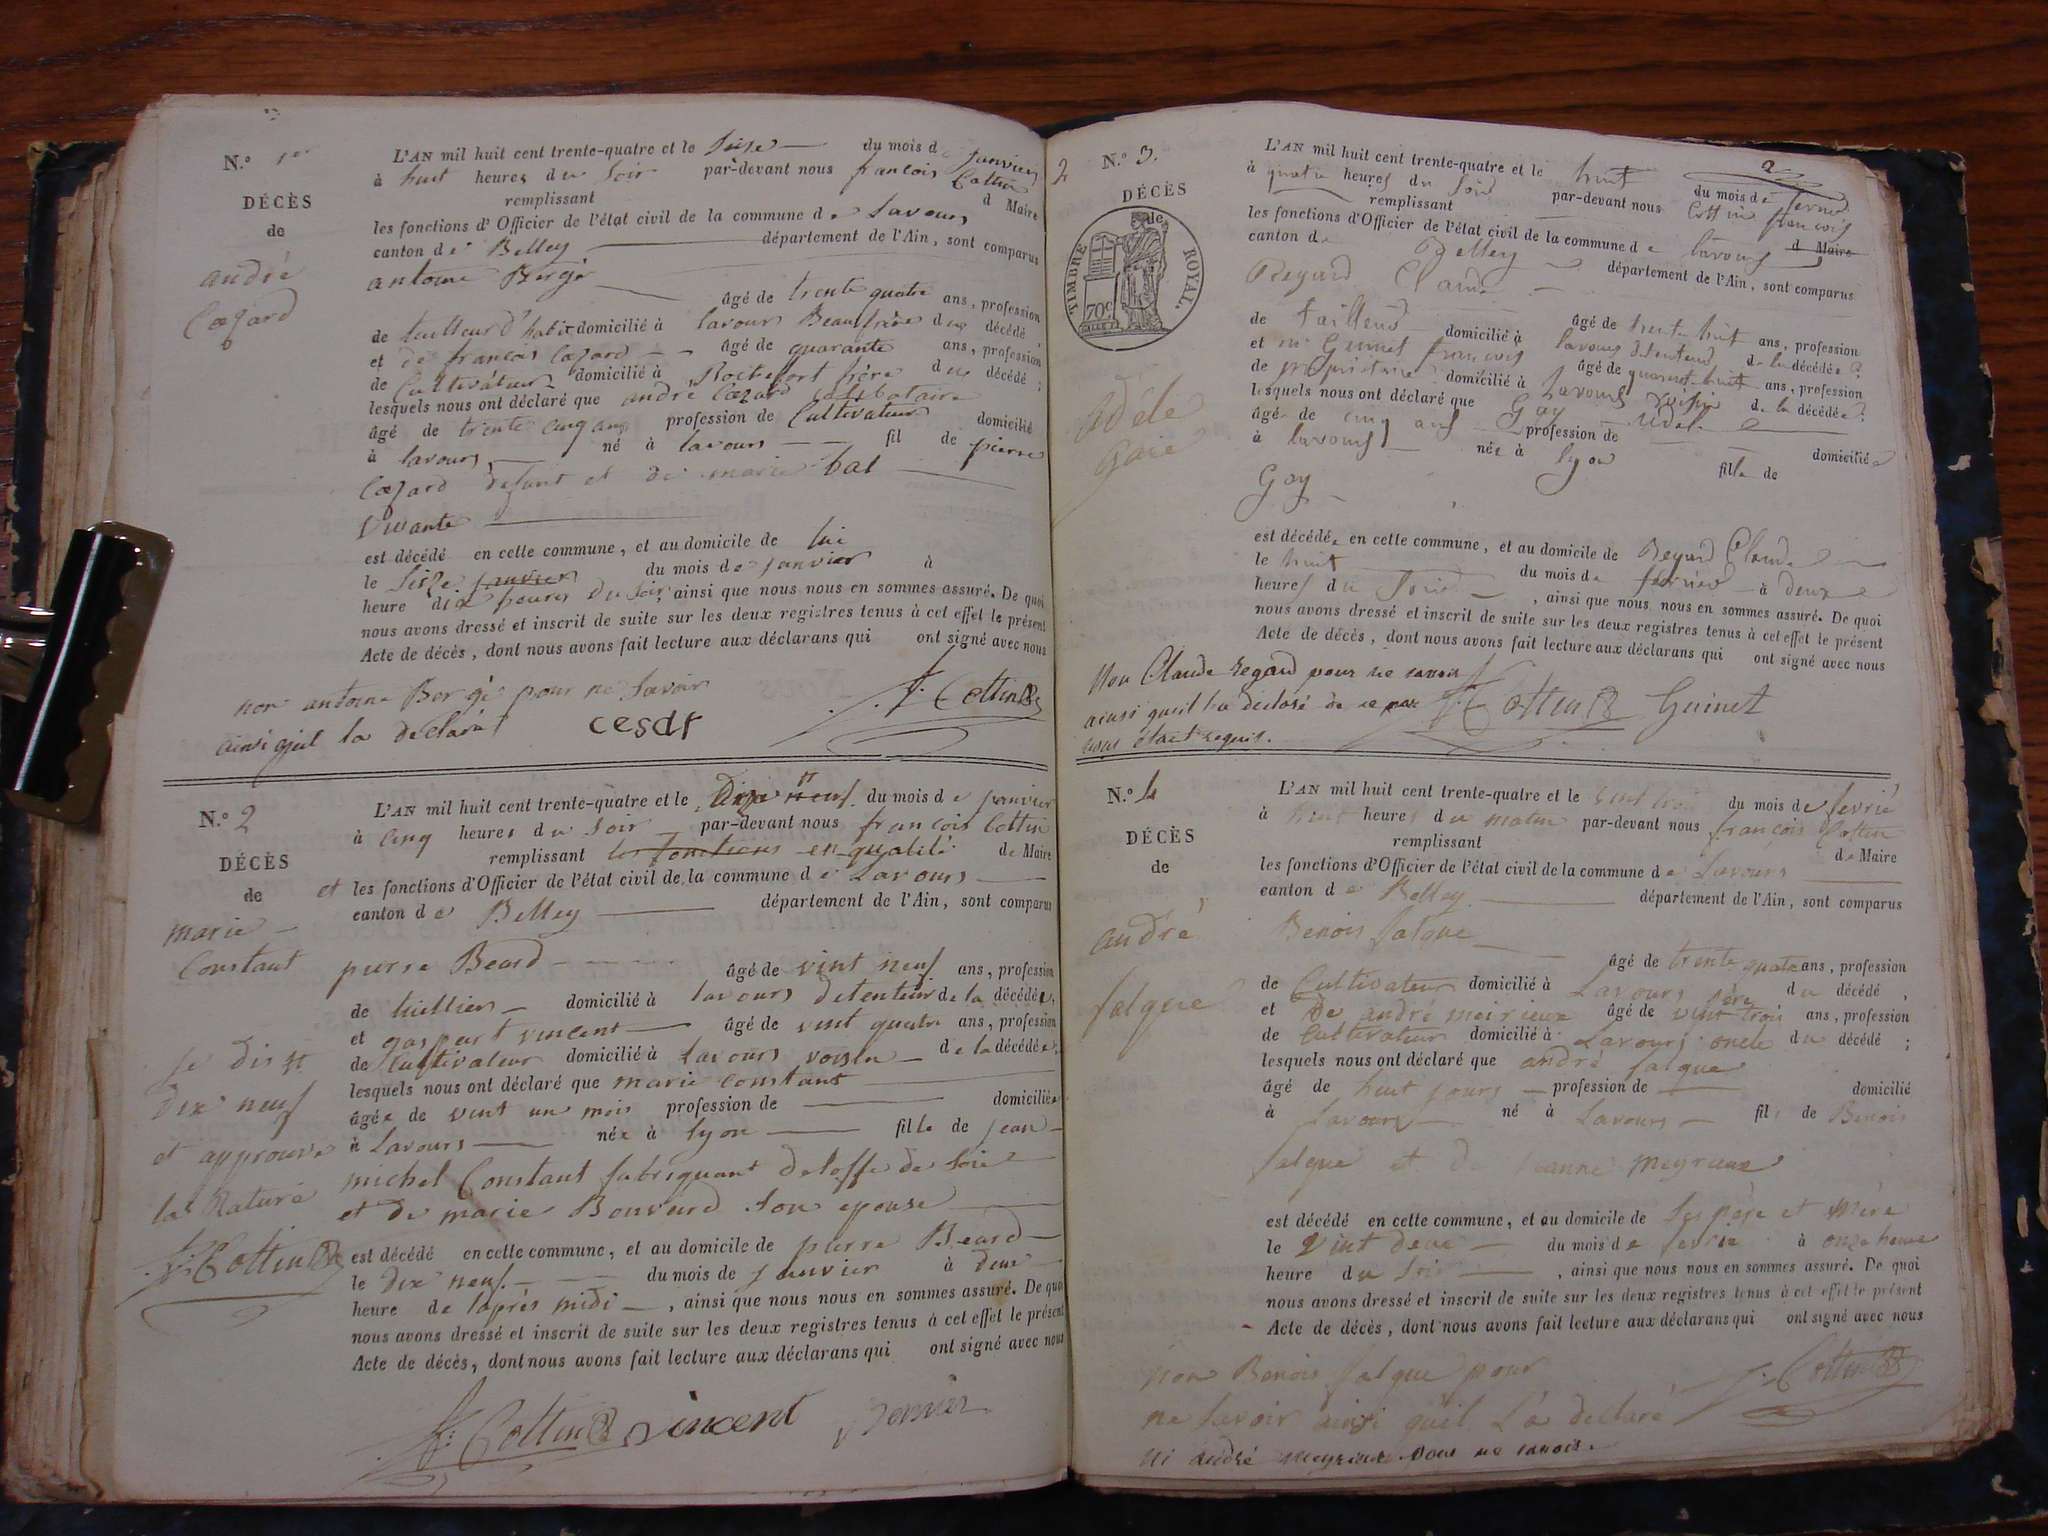 N.° 1er
DÉCÈS
de
andré
Cazard
L'AN mil huit cent trente-quatre et le seize du mois de janvier
à huit heures du soir par-devant nous francois Cottin
remplissant d Maire
les fonctions d'Officier de l'état civil de la commune de Lavours
canton de Belley département de l'Ain, sont comparus
antoine Bergé
âgé de trente quatre ans, profession
de tailleur d'habit domicilié à lavours Beaufrère du décédé,
et de francois Cazard âgé de quarante ans, profession
de Cultivateur domicilié à Rochefort frère du décédé;
lesquels nous ont déclaré que andré Cazard Célibataire
âgé de trente cinq ans profession de Cultivateur domicilié
à lavours né à lavours fil de pierre
Cazard defunt et de marie bal
vivante
est décédé en cette commune, et au domicile de lui
le seize janvier du mois de janvier à
heure dix heures du soir, ainsi que nous nous en sommes assuré. De quoi
nous avons dressé et inscrit de suite sur les deux registres tenus à cet effet le présent
Acte de décès, dont nous avons fait lecture aux déclarans qui ont signé avec nous
non antoine Bergé pour ne savoir
ainsi qu'il la déclaré
F. Cottin
N.° 2
DÉCÈS
de
marie
Constant
L'AN mil huit cent trente-quatre et le Dix neuf du mois de janvier
à cinq heures du soir par-devant nous francois Cottin
remplissant les fonctions en qualité de Maire
et les fonctions d'Officier de l'état civil de la commune de Lavours
canton de Belley département de l'Ain, sont comparus
pierre Beard
âgé de vint neuf ans, profession
de domicilié à lavours detenteur de la décédée,
et gaspart vincent âgé de vint quatre ans, profession
de Cultivateur domicilié à Lavours voisin de la décédée;
lesquels nous ont déclaré que marie constant
âgée de vint un mois profession de domiciliée
à Lavours née à lyon fille de jean
michel Constant fabriquant detoffe de soie
et de marie Bouvard son epouse
est décédé en cette commune, et au domicile de pierre Beard
le dix neuf du mois de janvier à deux
heure de laprés midi, ainsi que nous nous en sommes assuré. De quoi
nous avons dressé et inscrit de suite sur les deux registres tenus à cet effet le présent
Acte de décès, dont nous avons fait lecture aux déclarans qui ont signé avec nous
je dis
Dix neuf
et approuve
la Rature
F. Cottin
F. Cottin vincent
2
N.° 3.
DÉCÈS
de
TIMBRE ROYAL.
70c
adéle
2
L'AN mil huit cent trente-quatre et le huit du mois de
à quatre heures du soir par-devant nous Cottin francois
remplissant d Maire
les fonctions d'Officier de l'état civil de la commune de lavours
canton de Belley département de l'Ain, sont comparus
Regard Claude
âgé de trente huit ans, profession
de tailleur domicilié à lavours detenteur de la décédée,
et Guinet francois âgé de quarent huit ans, profession
de propriétaire domicilié à Lavours voisin de la décédée;
lesquels nous ont déclaré que Gay adel
âgée de cinq ans profession de domiciliée
à lavours née à lyon fille de
Gay
est décédée en cette commune, et au domicile de Regard Claude
le huit du mois de février à deux
heures du soir, ainsi que nous nous en sommes assuré. De quoi
nous avons dressé et inscrit de suite sur les deux registres tenus à cet effet le présent
Acte de décès, dont nous avons fait lecture aux déclarans qui ont signé avec nous
Non Claude Regard pour ne savoir
ainsi qu'il l'a déclaré de ce
étant requis.
F. Cottin Guinet
N.° 4
DÉCÈS
de
andré
falque
L'AN mil huit cent trente-quatre et le vint trois du mois de fevrié
à huit heures du matin par-devant nous françois Cottin
remplissant de Maire
les fonctions d'Officier de l'état civil de la commune de Lavours
canton de Belley département de l'Ain, sont comparus
Benois falque
âgé de trente quatre ans, profession
de Cultivateur domicilié à Lavours père du décédé,
et De andré meirieux âgé de vint trois ans, profession
de Cultivateur domicilié à Lavours oncle du décédé;
lesquels nous ont déclaré que andré falque
âgé de huit jours profession de domicilié
à Lavours né à Lavours fils de Benois
falque et de jeanne meyrieux
est décédé en cette commune, et au domicile de ses père et mère
le vint deux du mois de fevrie à onze heure
heure du soir, ainsi que nous nous en sommes assuré. De quoi
nous avons dressé et inscrit de suite sur les deux registres tenus à cet effet le présent
Acte de décès, dont nous avons fait lecture aux déclarans qui ont signé avec nous
non Benois falque pour
ne savoir ainsi qu'il l'a déclaré
ni andré meyrieux pour ne savoir.
F. Cottin